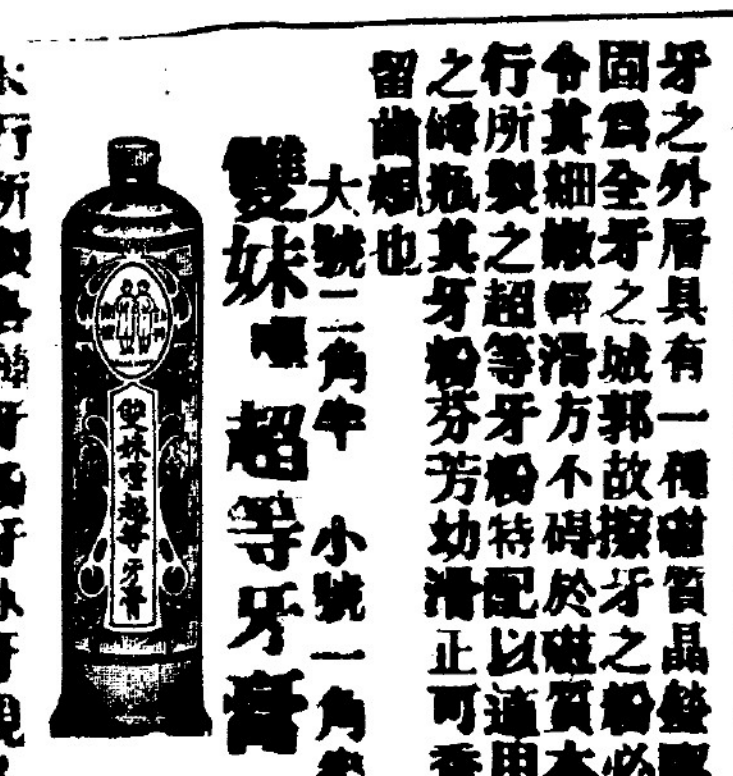 牙之外層具有一種磁質晶瑩
固爲全牙之城郭故擦牙之粉必
令其細嫩輕滑方不碍於磁質本
行所製之超等牙粉特配以適用
之罇瓶其牙粉芬芳幼滑正可香
留齒頰也
大號二角半 小號一角半
雙妹嚜超等牙膏
雙妹嚜超等牙膏